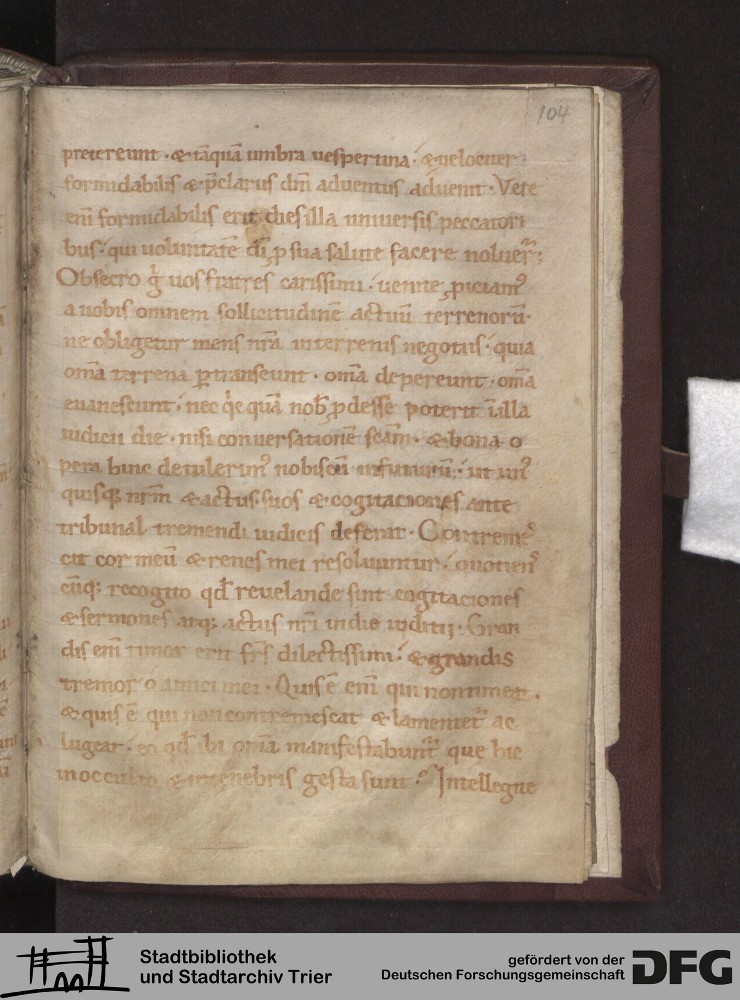 104
pretereunt · & tāquā umbra uespertina · & uelociter
formidabilis & p̄clarus dnī aduentus adueniet · Vere
enī formidabilis erit dies illa uniuersis peccatori
bus · qui uoluntatē dī ꝓ sua salute facere noluer̄ ;
Obsecro g̊ uos fratres carissimi · uenite ꝓiciamꝰ
a uobis omnem sollicitudinē actuū terrenorū ·
ne obligetur mens nrā in terrenis negotiis · quia
omīa terrena ꝑtranseunt · omīa depereunt · omīa
euanescunt · nec q̇cquā nob̄ ꝓdesse poterit ī illa
iudicii die · nisi conuersationē scām · & bona o
pera hinc detulerimꝰ nobiscū in futurū · ut unꝰ
quisq; nrm̄ & actus suos & cogitaciones ante
tribunal tremendi iudicis deferat · Contremeꝰ
cit cor meū & renes mei resoluuntur · quotienꝰ
cūq; recogito qđ reuelande sint cogitaciones
& sermones atq; actus nrī in die iuditii · Gran
dis enī timor erit frs̄ dilectissimi · & grandis
tremor o amici mei · Quis ē enī qui non timeat ·
& quis ē qui non contremescat & lamentet᷑ ac
lugeat · eo qđ ibi omīa manifestabunt᷑ que hic
in occulto & in tenebris gesta sunt · Intellegite
Stadtbibliothek
und Stadtarchiv Trier
gefördert von der
Deutschen Forschungsgemeinschaft
DFG